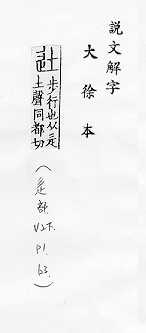 說文解字
大徐本
步行也从辵
土聲同都切
(辵部. V2下. P1. b3.)